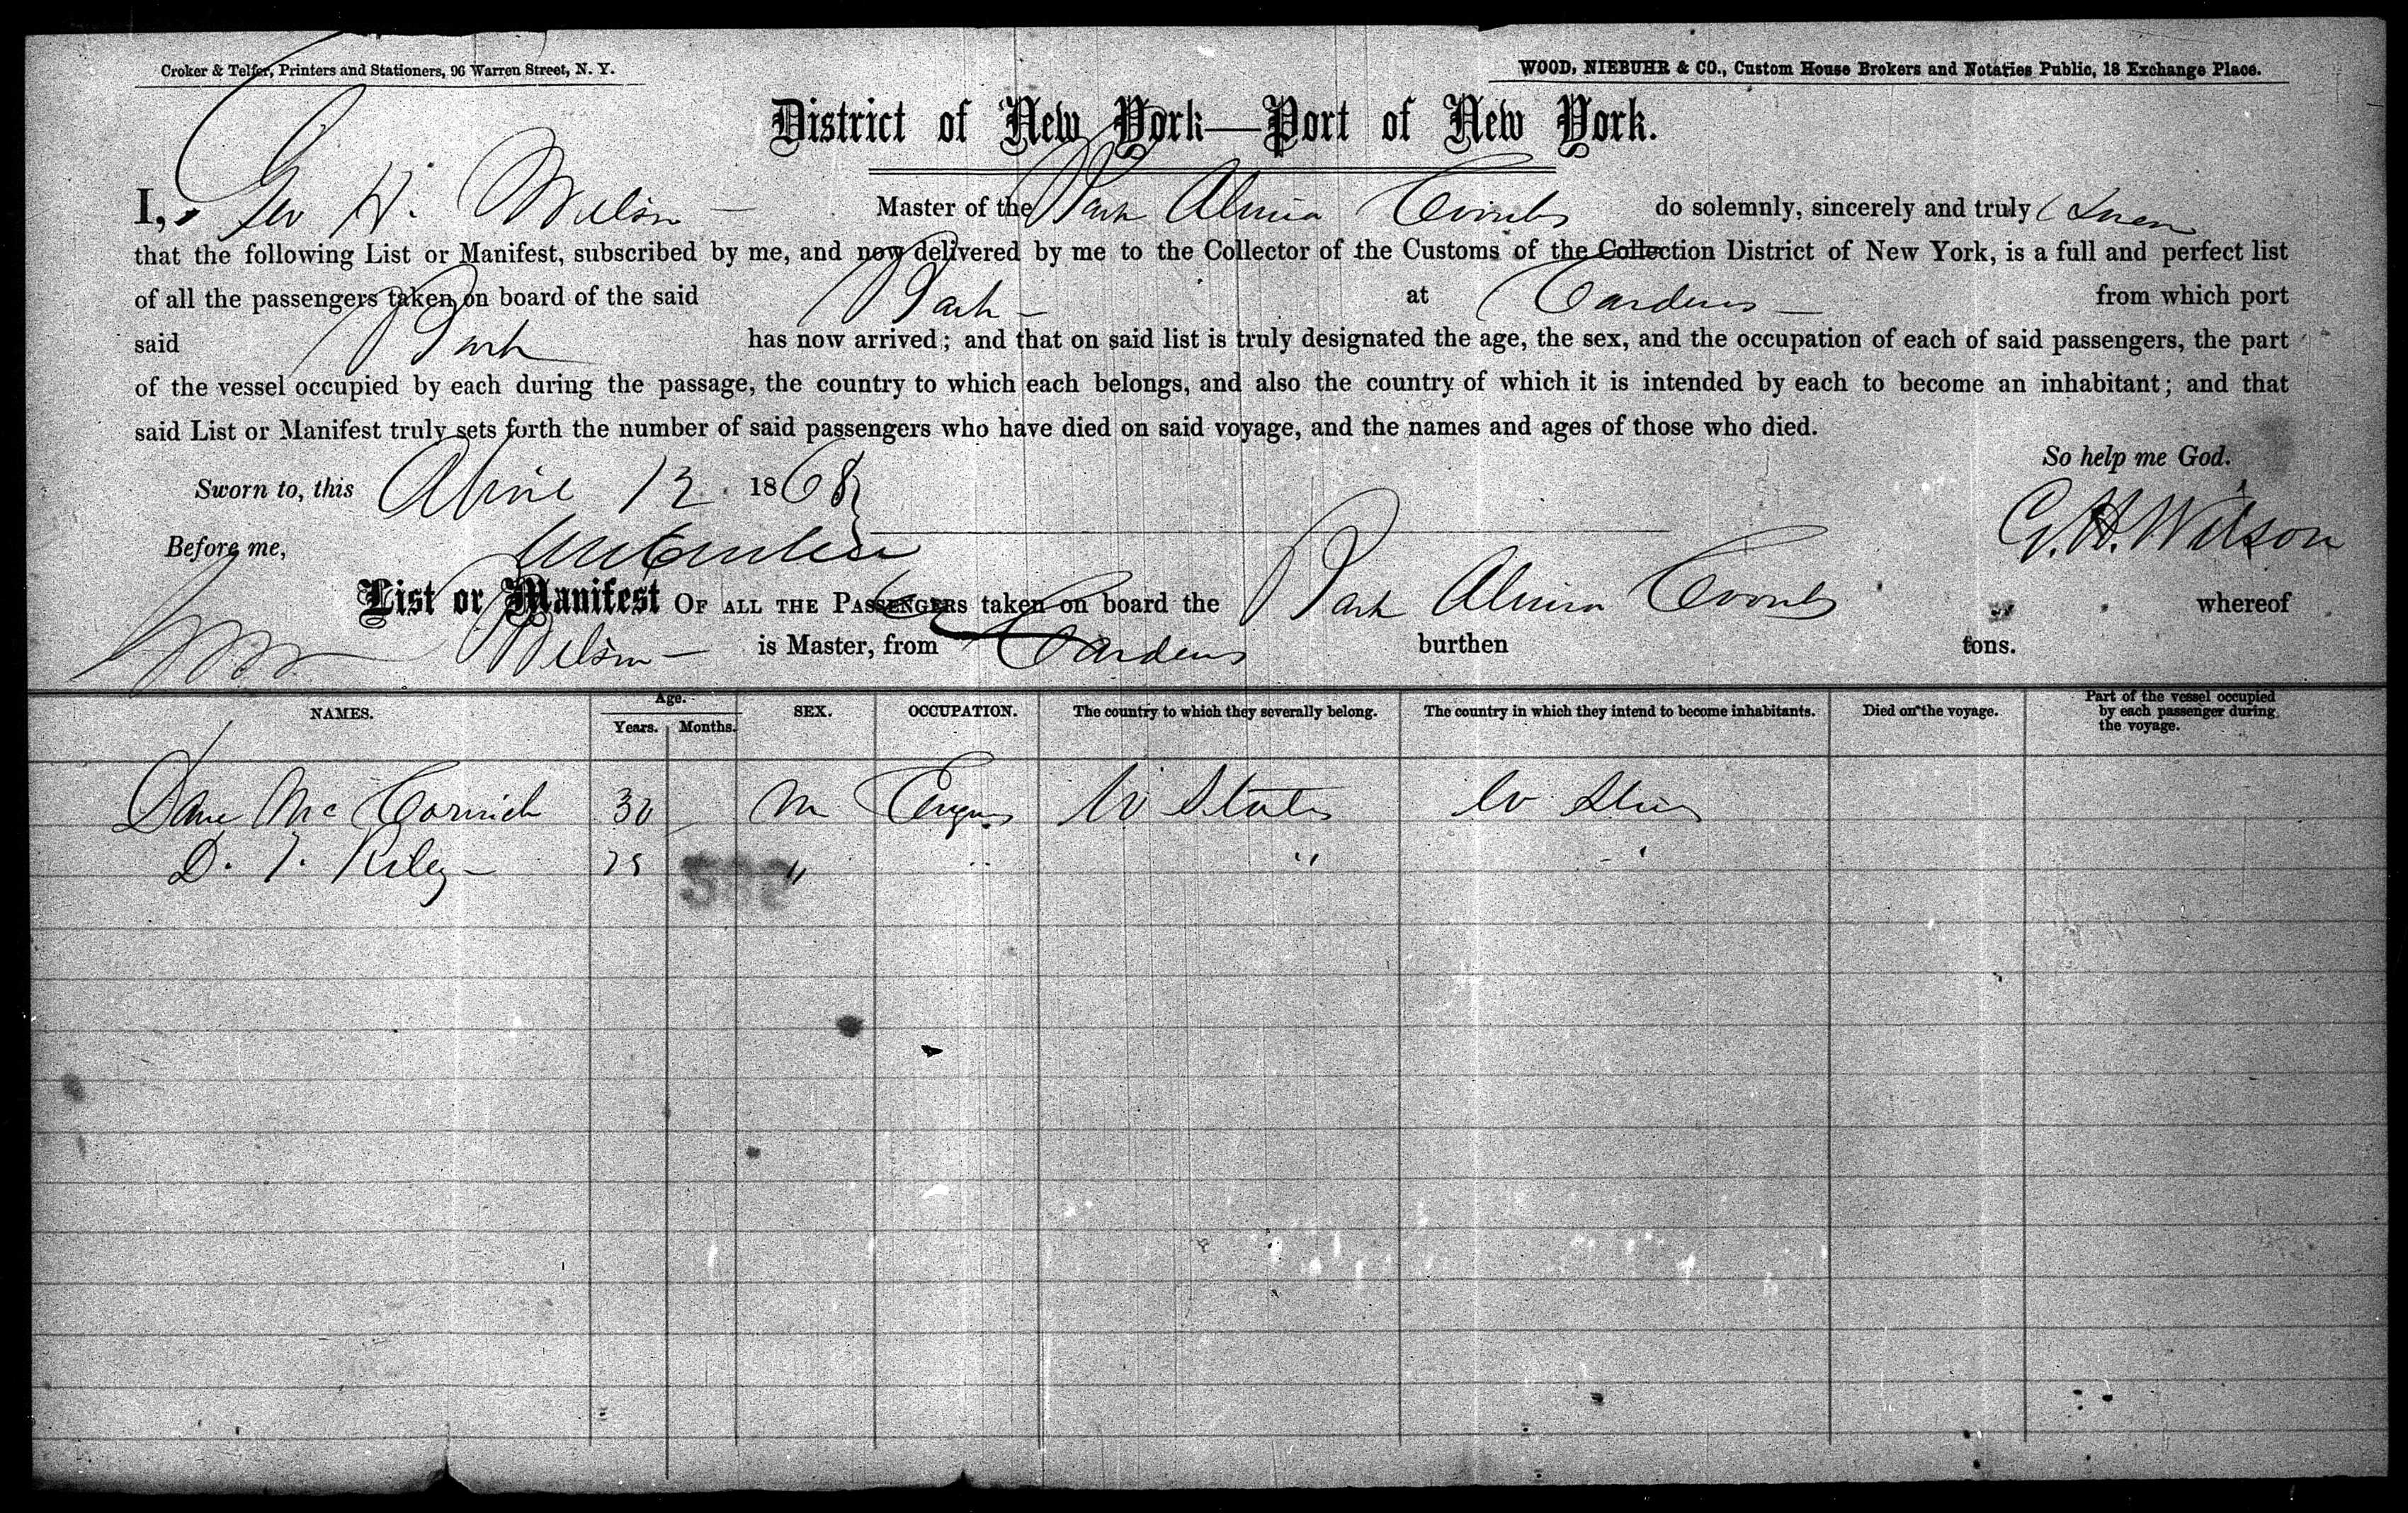 Croker & Telfer, Printers and Stationers, 96 Warren Street, N. Y.
WOOD, NIEBUHR & CO., Custom House Brokers and Notaries Public, 18 Exchange Place.
District of New York—Port of New York.
I, Geo H. Wilson — Master of the Bark Almira Coombs do solemnly, sincerely and truly Swear
that the following List or Manifest, subscribed by me, and now delivered by me to the Collector of the Customs of the Collection District of New York, is a full and perfect list
of all the passengers taken on board of the said Bark — at Cardenas — from which port
said Bark has now arrived; and that on said list is truly designated the age, the sex, and the occupation of each of said passengers, the part
of the vessel occupied by each during the passage, the country to which each belongs, and also the country of which it is intended by each to become an inhabitant; and that
said List or Manifest truly sets forth the number of said passengers who have died on said voyage, and the names and ages of those who died.
So help me God.
Sworn to, this April 13 1868
G. H. Wilson
Before me,
List or Manifest OF ALL THE PASSENGERS taken on board the Bark Almira Coombs whereof
Wilson — is Master, from Cardenas burthen tons.
NAMES. Age. Years. Months. SEX. OCCUPATION. The country to which they severally belong. The country in which they intend to become inhabitants. Died on the voyage. Part of the vessel occupied by each passenger during the voyage.
Dane Mc Cormick 30 M U States U States
D. T. Riley — 25 " " " "